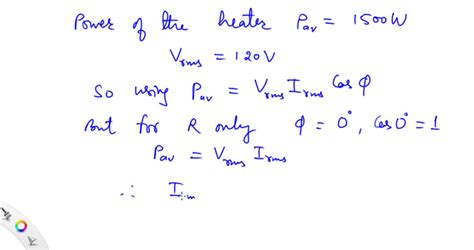 Power of the heater Pav = 1500W
Vrms = 120V
So using Pav = Vrms Irms Cos φ
But for R only φ = 0°, Cos0° = 1
Pav = Vrms Irms
∴ Irm